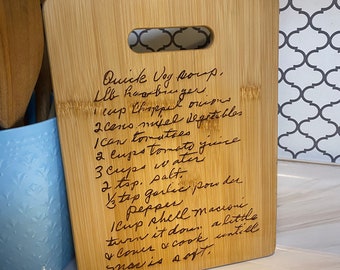 Quick Veg soup.
1 lb hamburger
1 cup chopped onions
2 cans mixed vegetables
1 can tomatoes
2 cups tomato juice
3 cups water
2 tsp. salt
1/2 tsp garlic powder
pepper
1 cup shell Macroni
turn it down a little
& cover & cook untill
mac is soft.